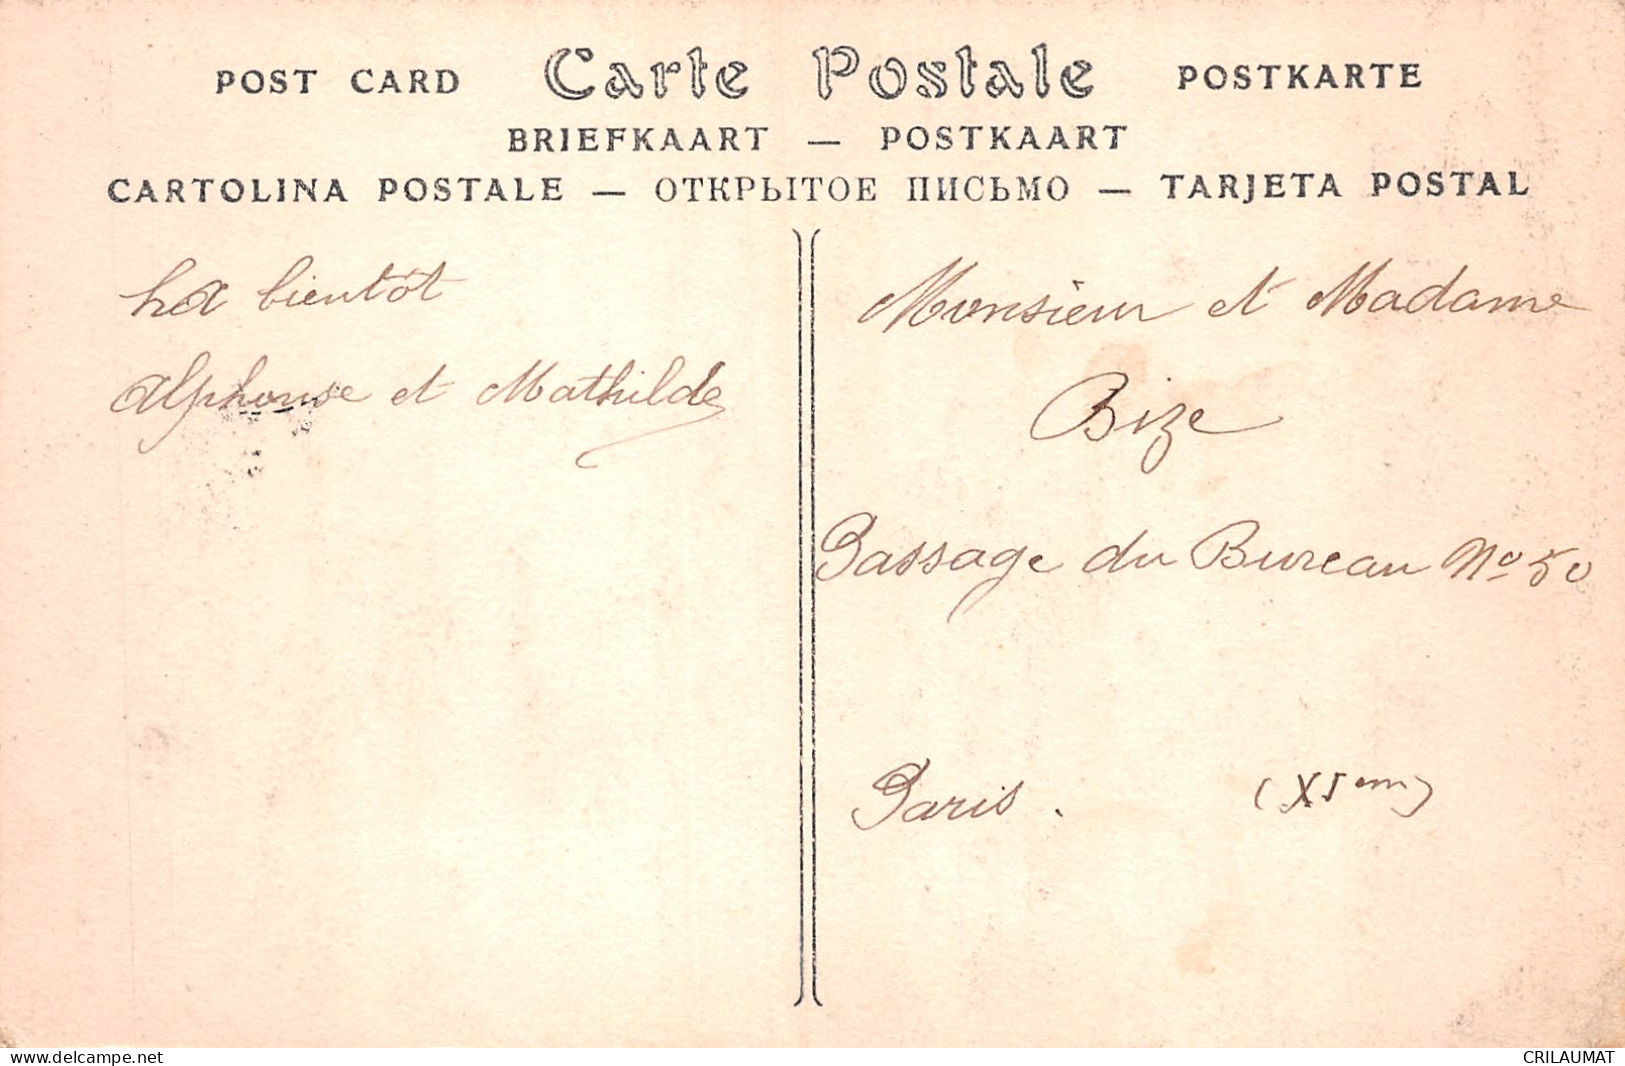 POST CARD Carte Postale POSTKARTE
BRIEFKAART — POSTKAART
CARTOLINA POSTALE — ОТКРЫТОЕ ПИСЬМО — TARJETA POSTAL
bientôt
Alphonse et Mathilde
Monsieur et Madame
Bize
Passage du Bureau No 50
Paris. (XIem)
delcampe.net
CRILAUMAT